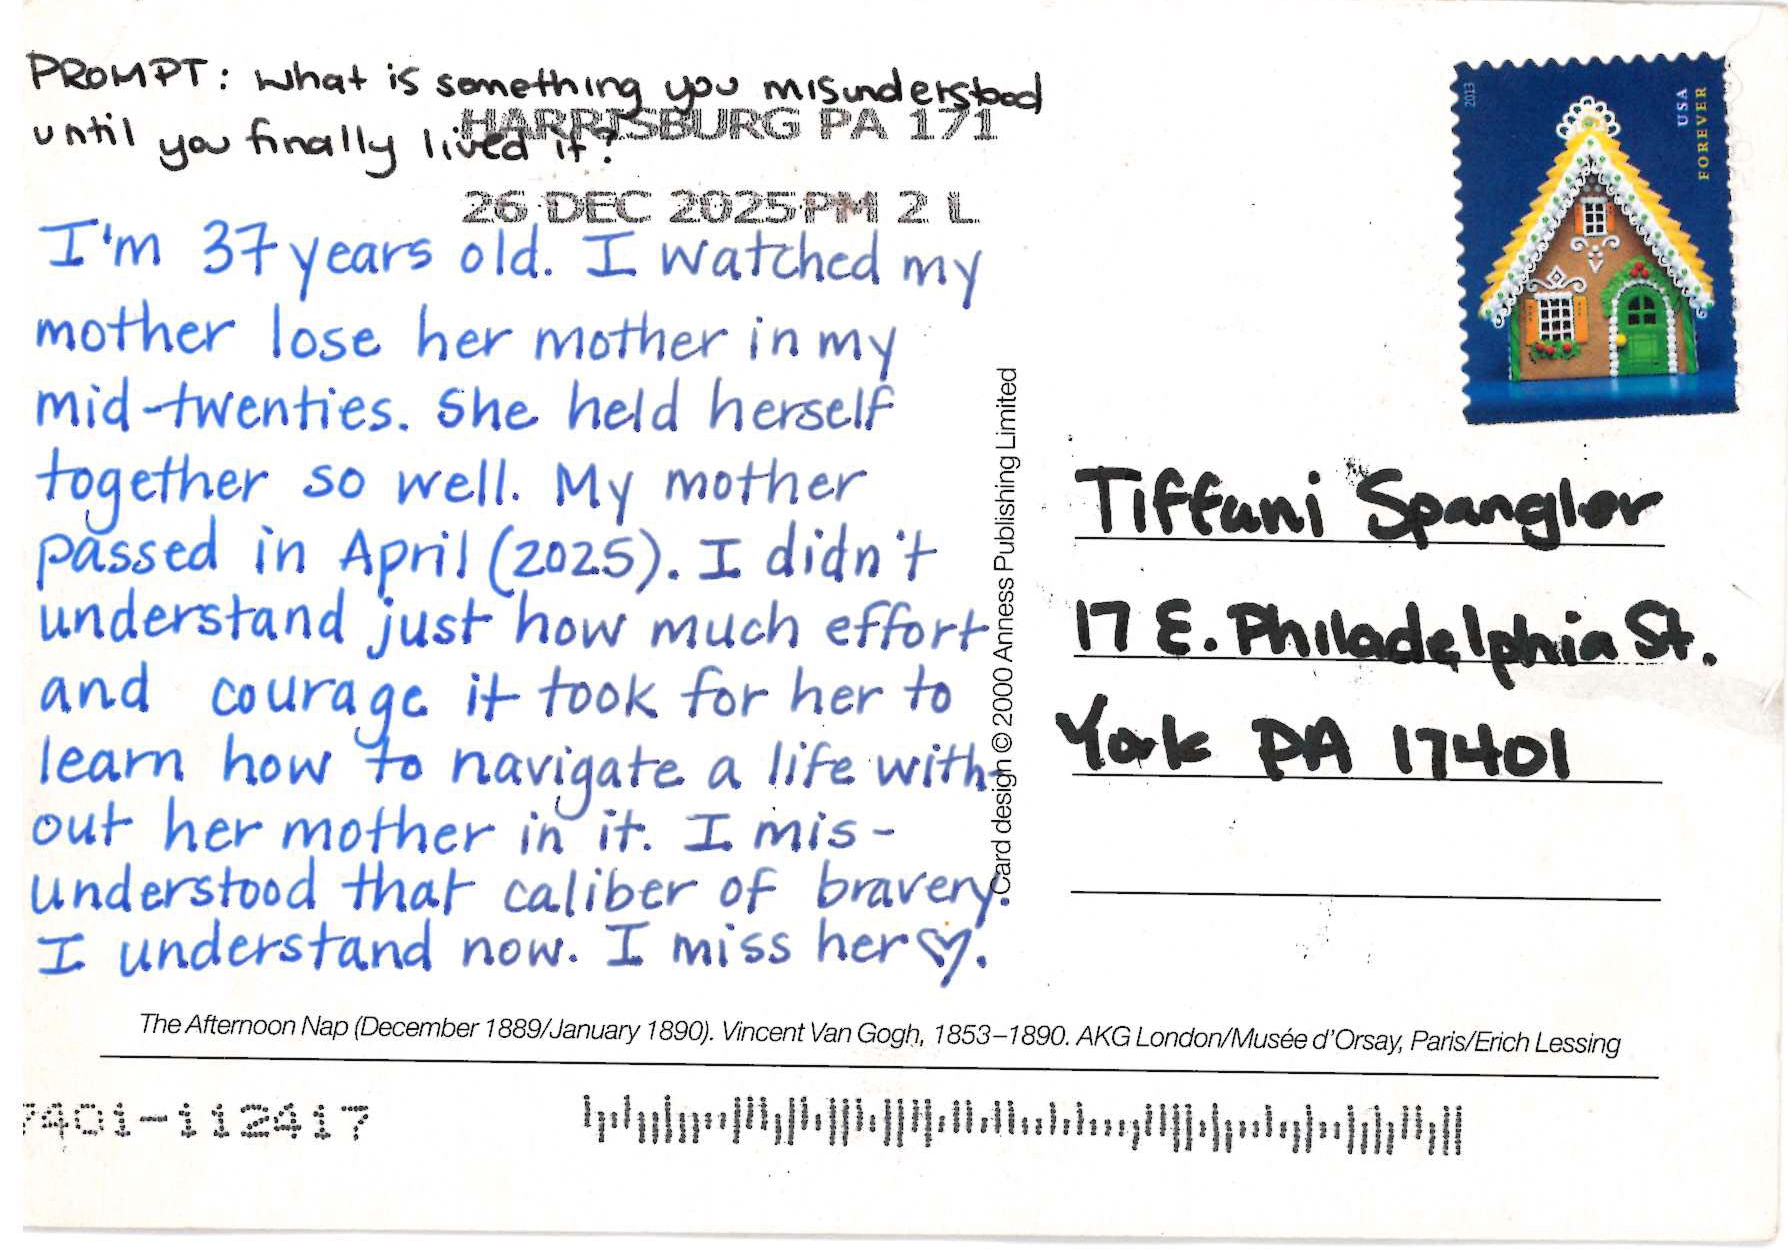 PROMPT: What is something you misunderstood
until you finally lived it?
HARRISBURG PA 171
26 DEC 2025PM 2 L
I'm 37 years old. I watched my
mother lose her mother in my
mid-twenties. She held herself
together so well. My mother
passed in April (2025). I didn't
understand just how much effort
and courage it took for her to
learn how to navigate a life with-
out her mother in it. I mis-
understood that caliber of bravery.
I understand now. I miss her♡.
Card design © 2000 Anness Publishing Limited
2013
USA
FOREVER
Tiffani Spangler
17 E. Philadelphia St.
York PA 17401
The Afternoon Nap (December 1889/January 1890). Vincent Van Gogh, 1853–1890. AKG London/Musée d'Orsay, Paris/Erich Lessing
7401-112417